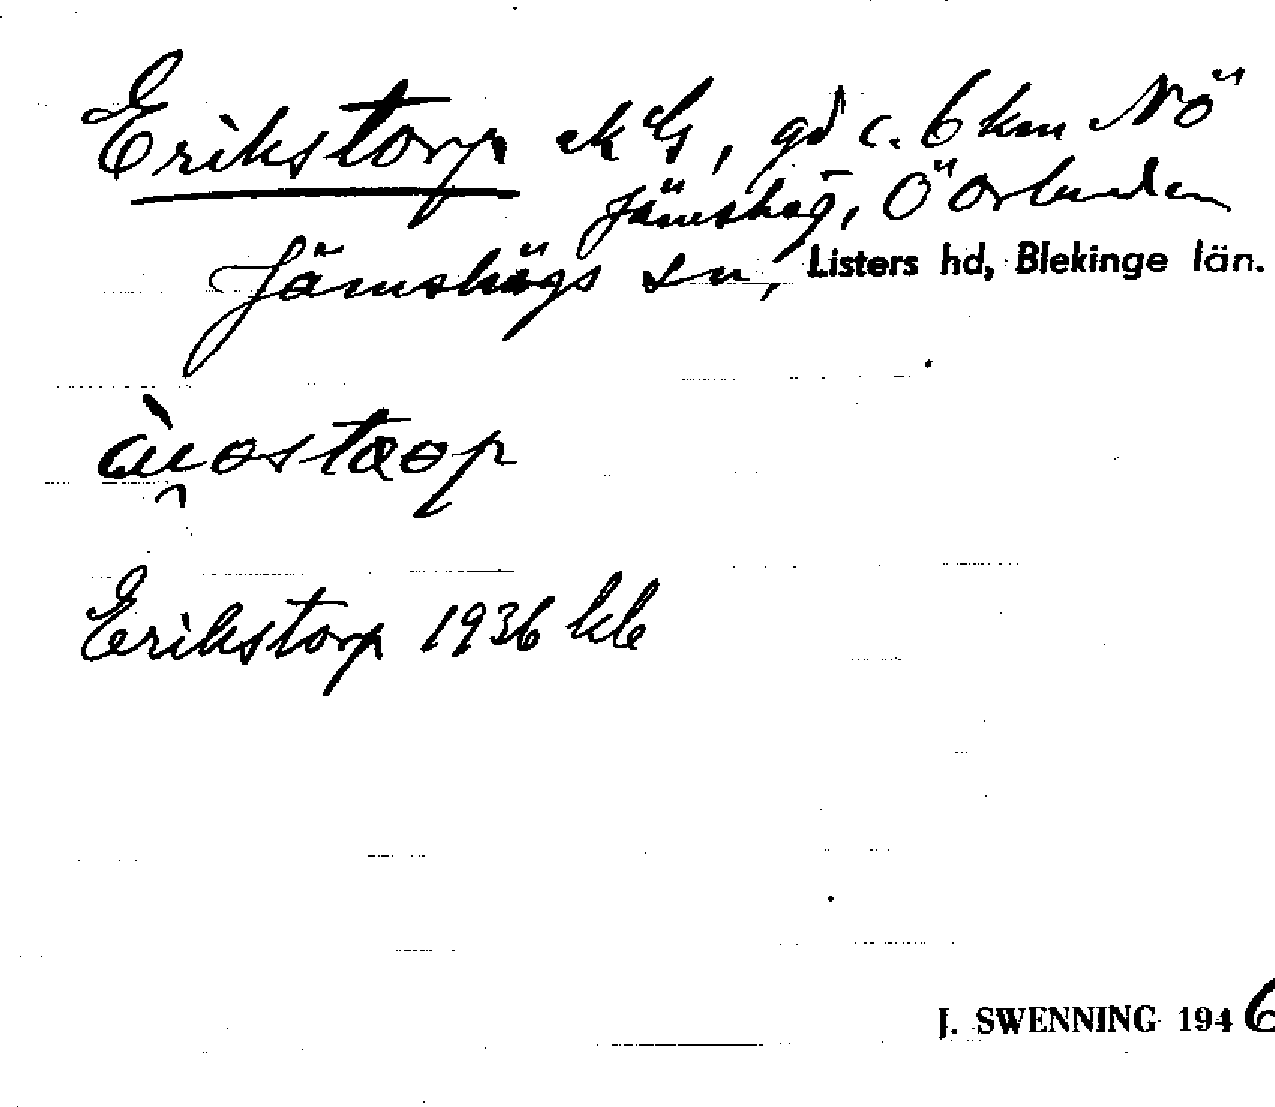 Erikstorp NG, gd c. 6 km NÖ
Jämshög, Ö Orlunden
Jämshögs sn, Listers hd, Blekinge län.
Erikstorp 1936 kb
J. SWENNING 1946